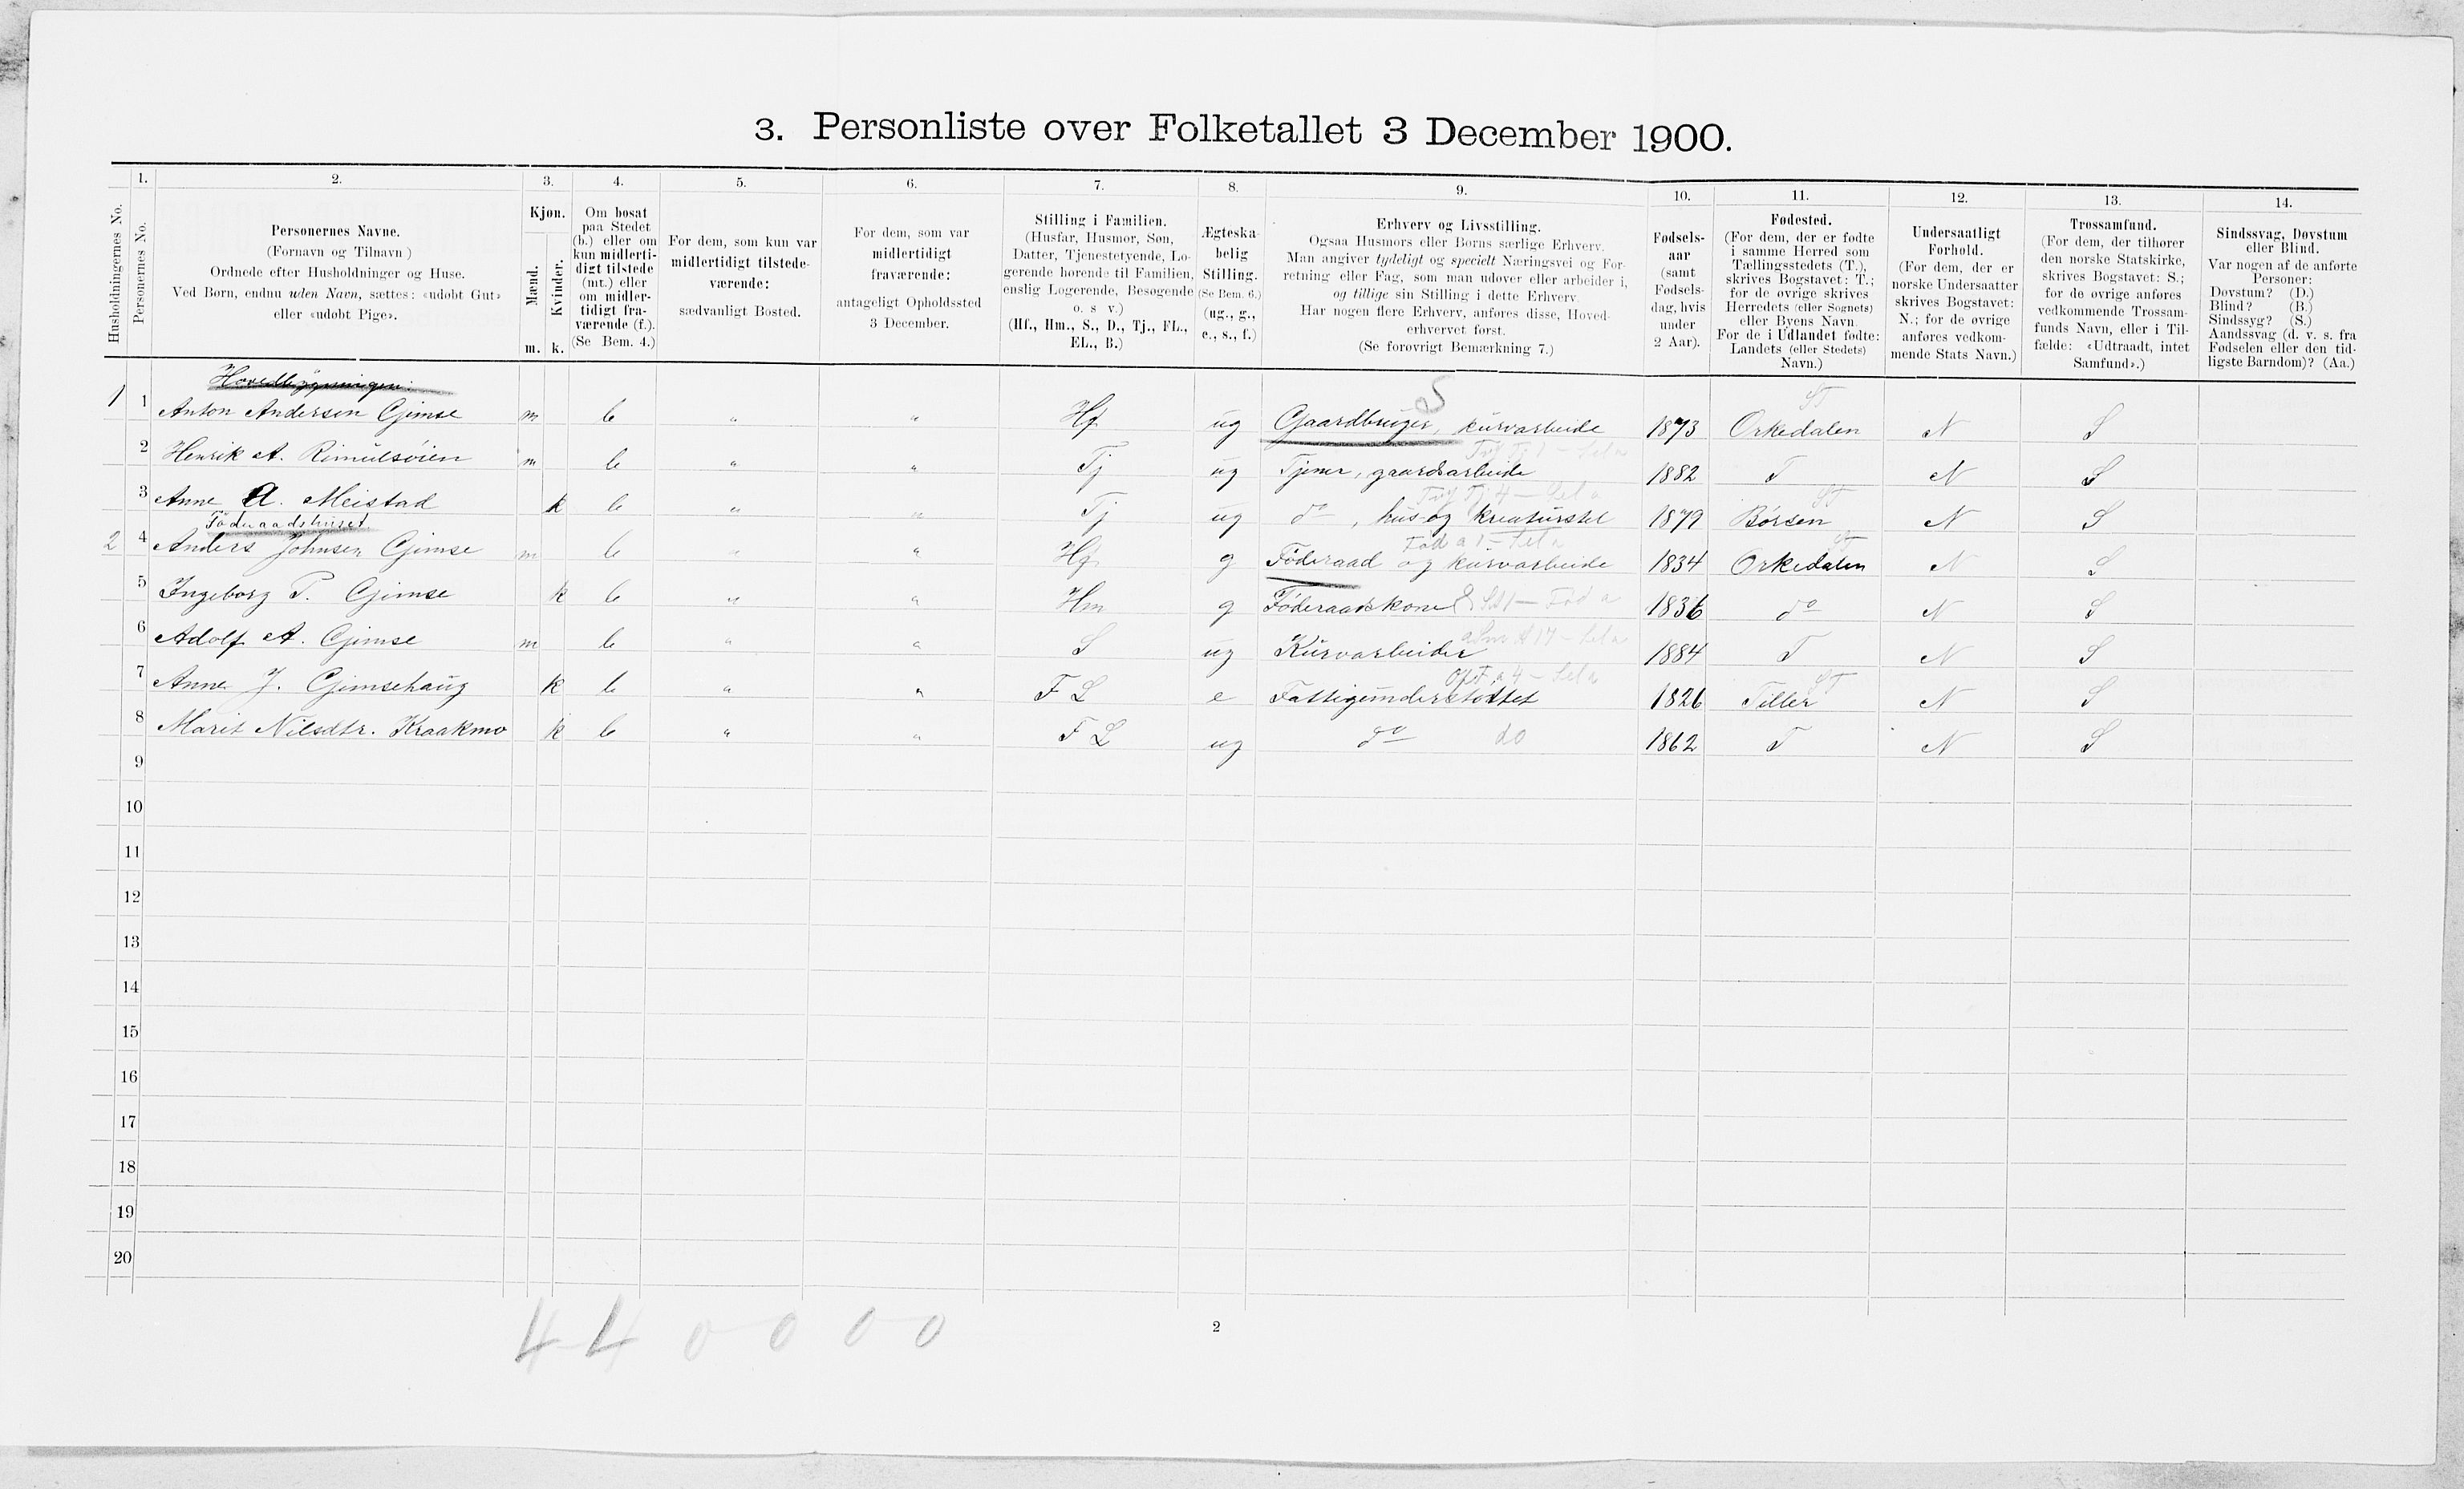 3. Personliste over Folketallet 3 December 1900.
1. 2. 3. 4. 5. 6. 7. 8. 9. 10. 11. 12. 13. 14.
Husholdningernes No.
Personernes No.
Personernes Navne.
(Fornavn og Tilnavn)
Ordnede efter Husholdninger og Huse.
Ved Børn, endnu uden Navn, sættes: «udøbt Gut»
eller «udøbt Pige».
Kjøn.
Mænd.
Kvinder.
m. k.
Om bosat
paa Stedet
(b.) eller om
kun midlerti-
digt tilstede
(mt.) eller
om midler-
tidigt fra-
værende (f.).
(Se Bem. 4.)
For dem, som kun var
midlertidigt tilstede-
værende:
sædvanligt Bosted.
For dem, som var
midlertidigt
fraværende:
antageligt Opholdssted
3 December.
Stilling i Familien.
(Husfar, Husmor, Søn,
Datter, Tjenestetyende, Lo-
gerende hørende til Familien,
enslig Logerende, Besøgende
o. s v.)
(Hf., Hm., S., D., Tj., FL.,
EL., B.)
Ægteska-
belig
Stilling.
(Se Bem. 6.)
(ug., g.,
e., s., f.)
Erhverv og Livsstilling.
Ogsaa Husmors eller Børns særlige Erhverv.
Man angiver tydeligt og specielt Næringsvei og For-
retning eller Fag, som man udøver eller arbeider i,
og tillige sin Stilling i dette Erhverv.
Har nogen flere Erhverv, anføres disse, Hoved-
erhvervet først.
(Se forøvrigt Bemærkning 7.)
Fødsels-
aar
(samt
Fødsels-
dag, hvis
under
2 Aar).
Fødested.
(For dem, der er fødte
i samme Herred som
Tællingsstedets (T.),
skrives Bogstavet: T.;
for de øvrige skrives
Herredets (eller Sognets)
eller Byens Navn.
For de i Udlandet fødte:
Landets (eller Stedets)
Navn.)
Undersaatligt
Forhold.
(For dem, der er
norske Undersaatter
skrives Bogstavet:
N.; for de øvrige
anføres vedkom-
mende Stats Navn.)
Trossamfund.
(For dem, der tilhører
den norske Statskirke,
skrives Bogstavet: S.;
for de øvrige anføres
vedkommende Trossam-
funds Navn, eller i Til-
fælde: «Udtraadt, intet
Samfund».)
Sindssvag, Døvstum
eller Blind.
Var nogen af de anførte
Personer:
Døvstum? (D.)
Blind? (B.)
Sindssyg? (S.)
Aandssvag (d. v. s. fra
Fødselen eller den tid-
ligste Barndom)? (Aa.)
Hovedbygningen.
S ST
1 1 Anton Andersen Gjimse m b " " Hf ug Gaardbruger, kurvarbeide 1873 Orkedalen N S
2 Henrik A. Rimulsøien m b " " Tj ug Tjener, gaardsarbeide 1882 T N S
ST
3 Anne A. Meistad k b " " Tj ug do, hus-og kreaturstel 1879 Børsen N S
Föderaadshuset.
ST
2 4 Anders Johnsen Gjimse m b " " Hf g Föderaad og kurvarbeide 1834 Orkedalen N S
5 Ingeborg P. Gjimse k b " " Hm g Föderaadskone 1836 do N S
6 Adolf A. Gjimse m b " " S ug Kurvarbeider 1884 T N S
ST
7 Anne J. Gjimsehaug k b " " F L e Fattigunderstøttet 1826 Tiller N S
8 Marit Nilsdtr. Kraakmo k b " " F L ug do do 1862 T N S
9
10
11
12
13
14
15
16
17
18
19
20
4 4 0 0 0 0
2